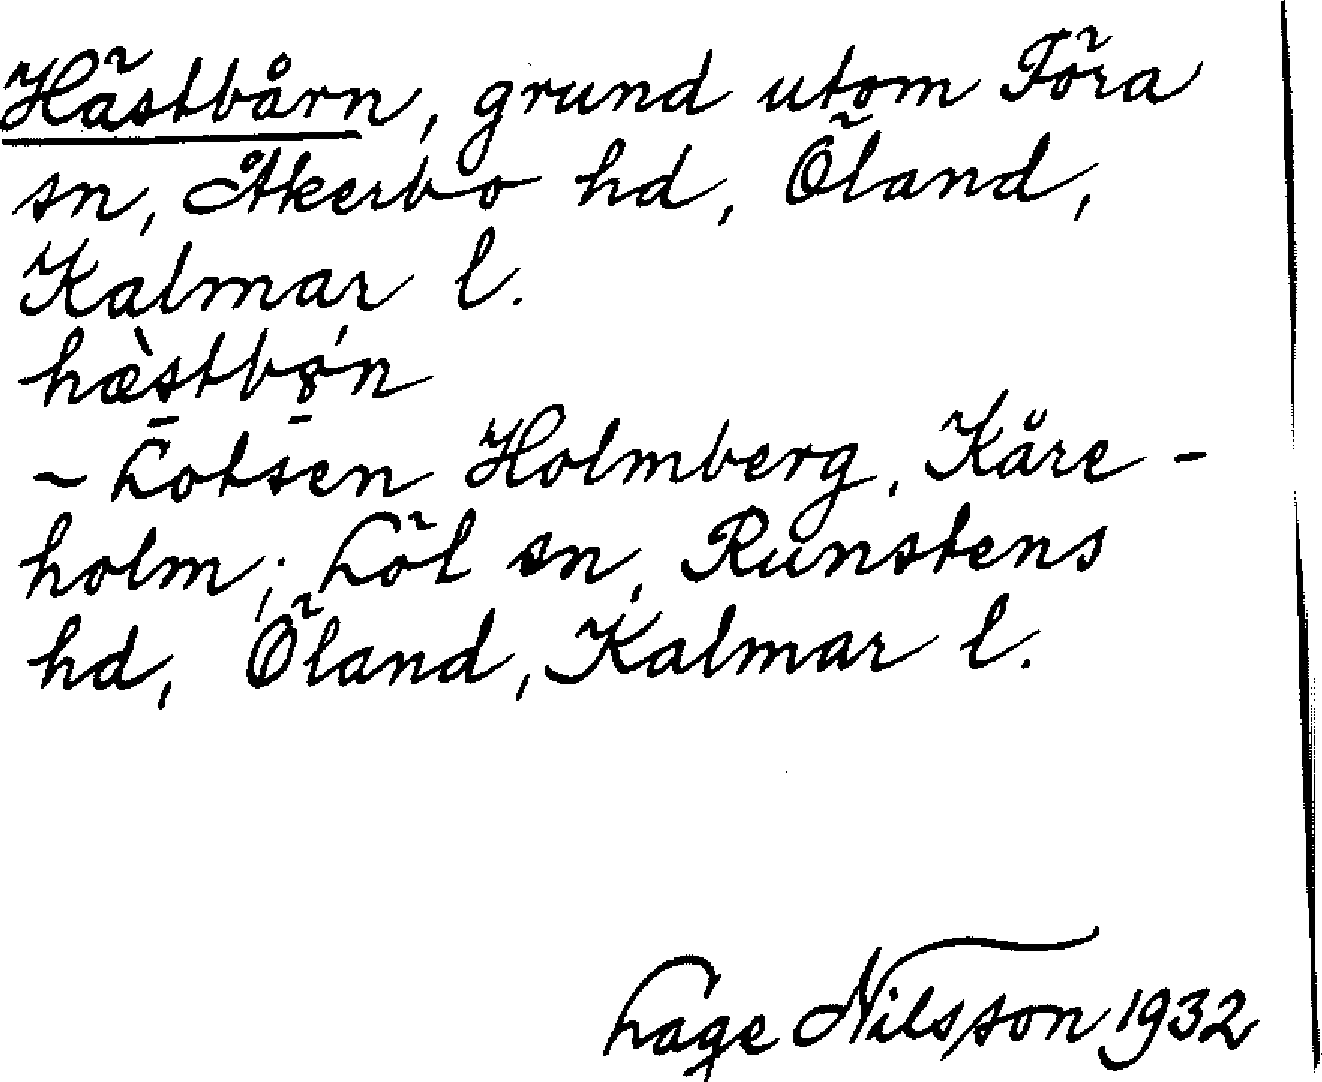 Hästbårn, grund utom Föra
sn, Åkerbo hd, Öland,
Kalmar l.
hæ̀stbǫ́n
~ Lotsen Holmberg, Kåre-
holm, Löt sn, Runstens
hd, Öland, Kalmar l.
Lage Nilsson 1932